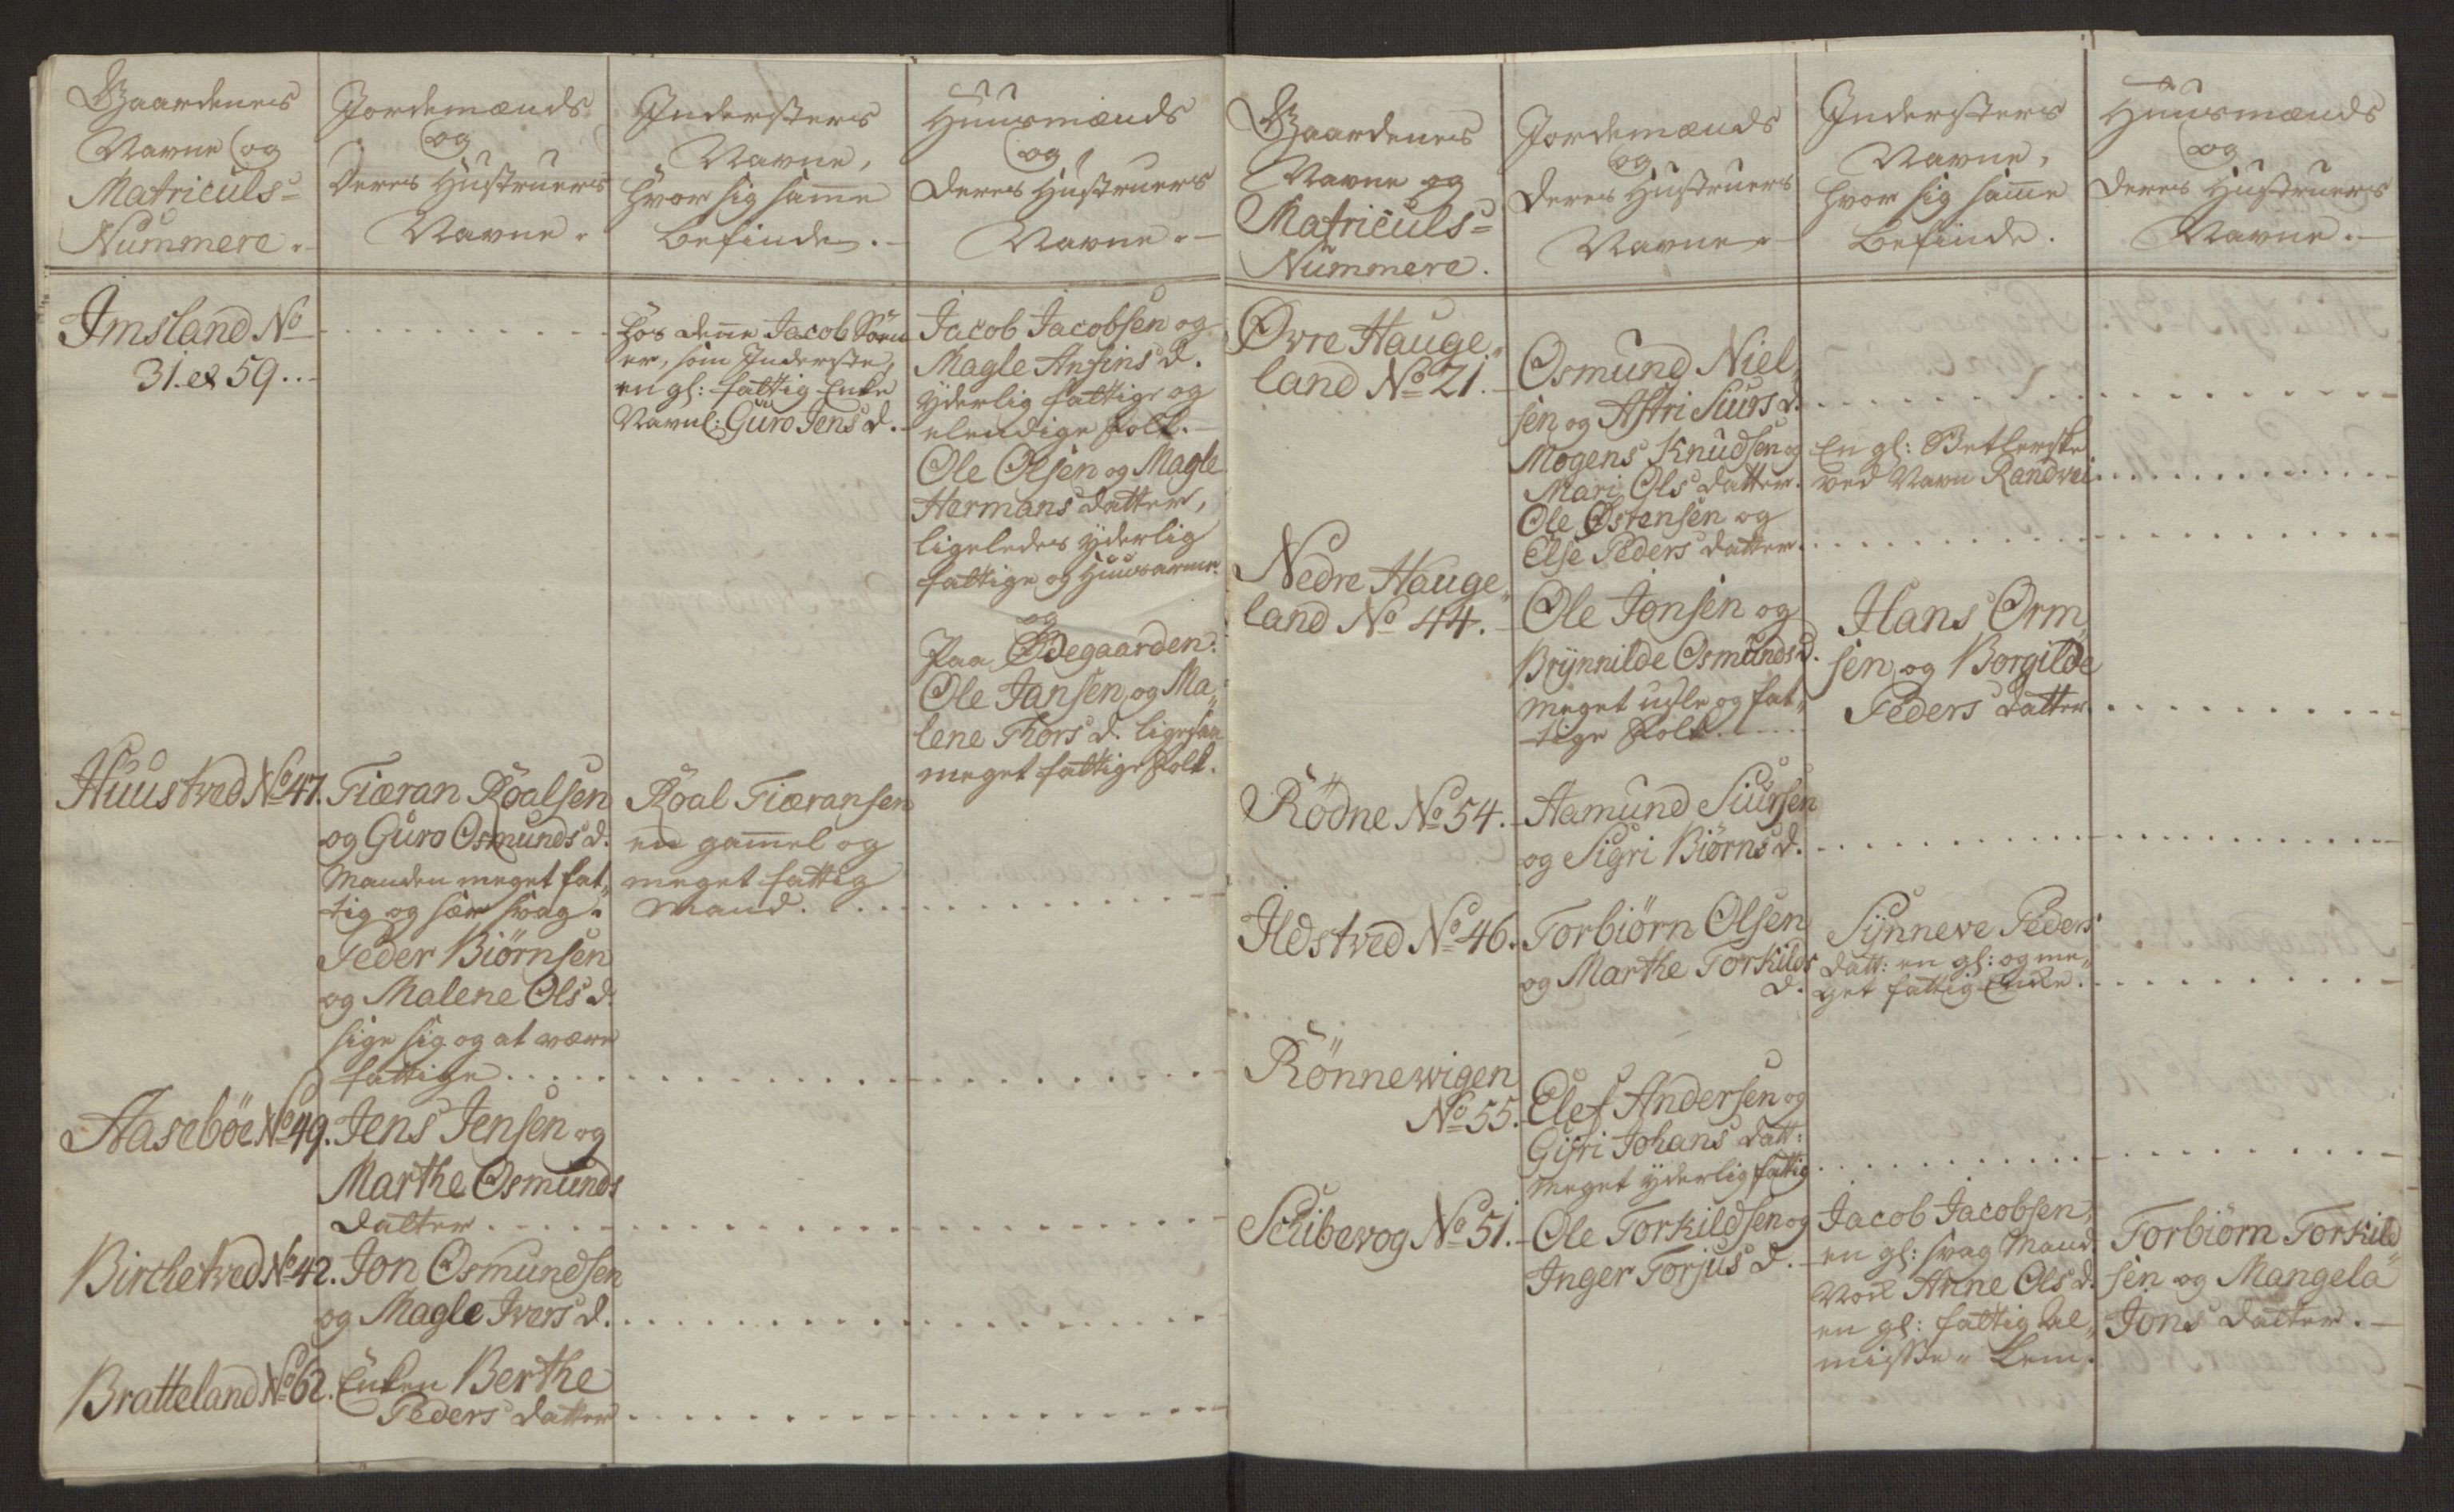 Gaardenes
Navne og
Matriculs-
Nummere.
Jordemænds
og
Deres Hustruers
Navne.
Indersters
Navne,
hvor sig same
befinde.
Huusmænds
og
deres Hustruers
Navne.
Imsland No
31. et 59...
hos dene Jacob Sören
er, som Inderste,
en gl: fattig Enke
Navnl: Guro Jens d.
Jacob Jacobsen og
Magle Anfins d.
yderlig fattige og
elendige folk.
Ole Olsen og Magle
Hermans datter,
ligeledes yderlig
fattige og Huusarme.
og
Paa Ødegaarden.
Ole Jansen og Ma„
lene Thors d. ligesaa
meget fattige folk.
Huustved No 47.
Tiæran Roalsen
og Guro Osmunds d.
Manden meget fat„
tig og sær svag.
Peder Biörnsen
og Malene Ols d.
sige sig og at være
fattige
Roal Tiæransen
en gamel og
meget fattig
Mand.
Aaseböe No 49.
Jens Jensen og
Marthe Osmunds
datter
Birchetved No 42.
Jon Osmundsen
og Magle Ivers d.
Bratteland No 62.
Enken Berthe
Peders datter
Gaardenes
Navne og
Matriculs-
Nummere.
Jordemænds
og
Deres Hustruers
Navne
Indersters
Navne,
hvor sig same
befinde.
Huusmænds
og
deres Hustruers
Navne.
Øvre Hauge„
land No 21.
Osmund Niel„
sen og Astri Siurs d.
Mogens Knudsen og
Mari Ols datter.
Ole Östensen og
Else Peders datter
En gl: Betlerske
ved Navn Randvei
Nedre Hauge„
land No 44.
Ole Jonsen og
Brynnilde Osmunds d.
meget usle og fat„
tige folk.
Hans Orm„
sen og Borgilde
Peders datter
Rödne No 54.
Aamund Siursen
og Sigri Biörns d.
Ildstved No 46.
Torbiörn Olsen
og Marthe Torkilds
d.
Synneve Peders
datt: en gl: og me„
get fattig Enke.
Rönnewigen
No 55.
Elef Andersen og
Gyri Johans datt:
meget yderlig fattig
Schibevog No 51.
Ole Torkildsen og
Inger Torjus d.
Jacob Jacobsen,
en gl: svag Mand
Nok Anne Ols d.
en gl: fattig Al„
misse„ Lem.
Torbiörn Torkild„
sen og Mangela
Jons datter.